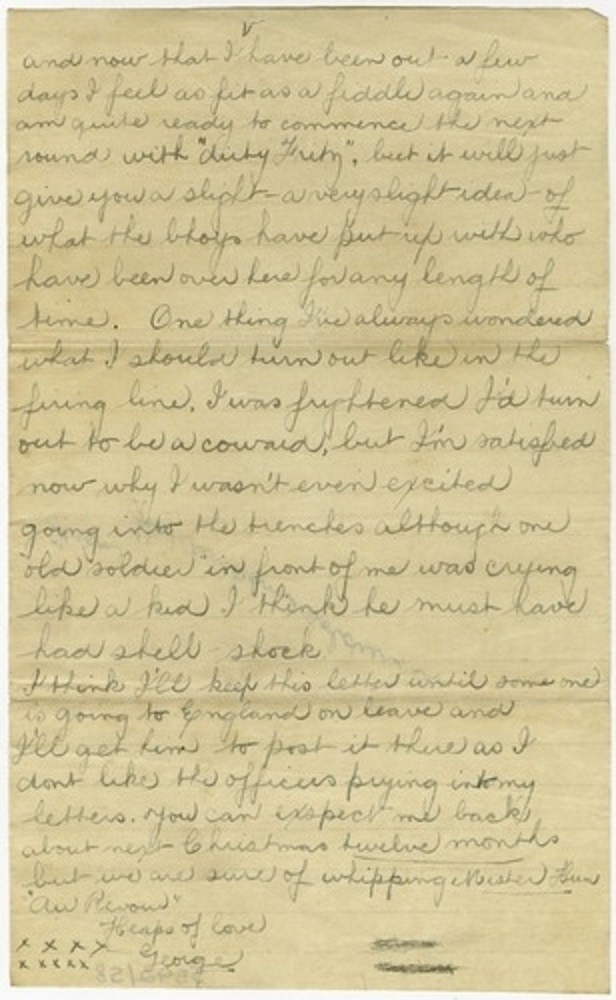 V
and now that I have been out a few
days I feel as fit as a fiddle again and
am quite ready to commence the next
round with "dirty Fritz", but it will just
give you a slight - a very slight idea of
what the bhoys have put up with who
have been over here for any length of
time. One thing I've always wondered
what I should turn out like in the
firing line, I was frightened I'd turn
out to be a coward, but I'm satisfied
now why I wasn't even excited
going into the trenches although one
old soldier in front of me was crying
like a kid I think he must have
had shell shock
I think I'll keep this letter until some one
is going to England on leave and
I'll get him to post it there as I
dont like the officers prying into my
letters. You can expect me back
about next Christmas twelve months
but we are sure of whipping Mister Hun
"Au Revoir"
Heaps of love
x x x x George
x x x x x